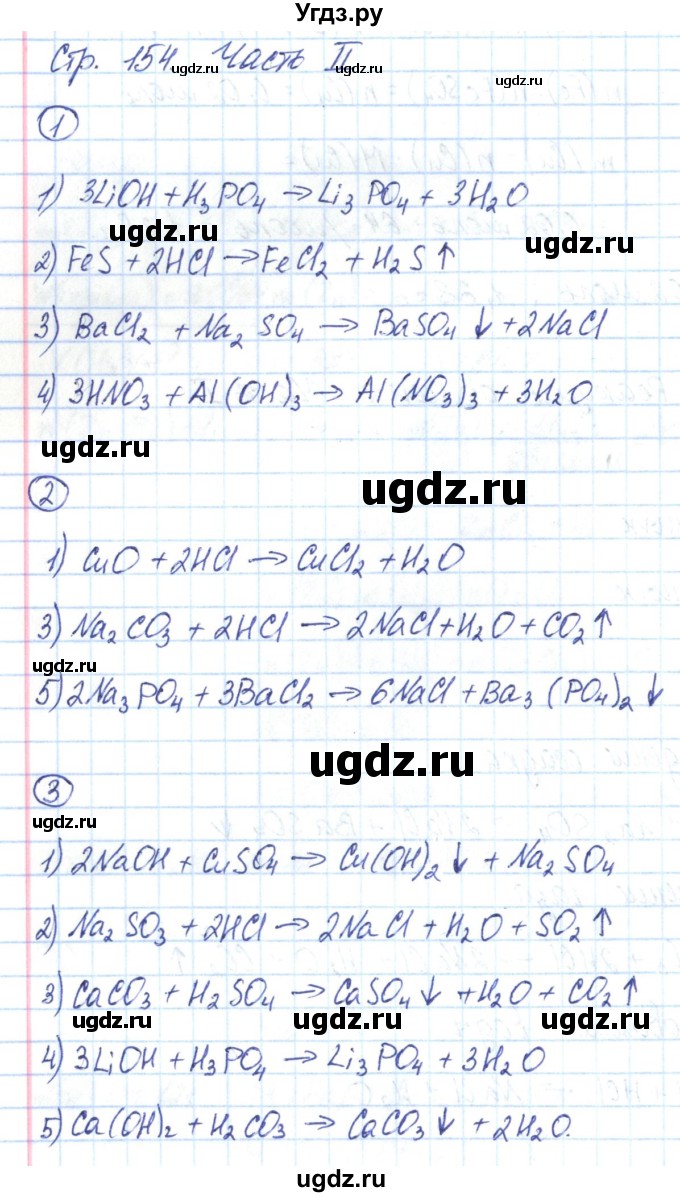 Угдз.ру
Стр. 154 Часть II
ugdz.ru ugdz.ru ugdz.ru
1
1) 3LiOH + H₃PO₄ → Li₃PO₄ + 3H₂O
ugdz.ru ugdz.ru
2) FeS + 2HCl → FeCl₂ + H₂S ↑
3) BaCl₂ + Na₂SO₄ → BaSO₄ ↓ + 2NaCl
4) 3HNO₃ + Al(OH)₃ → Al(NO₃)₃ + 3H₂O
ugdz.ru
2
ugdz.ru
1) CuO + 2HCl → CuCl₂ + H₂O
3) Na₂CO₃ + 2HCl → 2NaCl + H₂O + CO₂ ↑
ugdz.ru
5) 2Na₃PO₄ + 3BaCl₂ → 6NaCl + Ba₃(PO₄)₂ ↓
ugdz.ru
3
ugdz.ru
1) 2NaOH + CuSO₄ → Cu(OH)₂ ↓ + Na₂SO₄
2) Na₂SO₃ + 2HCl → 2NaCl + H₂O + SO₂ ↑
3) CaCO₃ + H₂SO₄ → CaSO₄ ↓ + H₂O + CO₂ ↑
ugdz.ru ugdz.ru ugdz.ru
4) 3LiOH + H₃PO₄ → Li₃PO₄ + 3H₂O
5) Ca(OH)₂ + H₂CO₃ → CaCO₃ ↓ + 2H₂O.
ugdz.ru